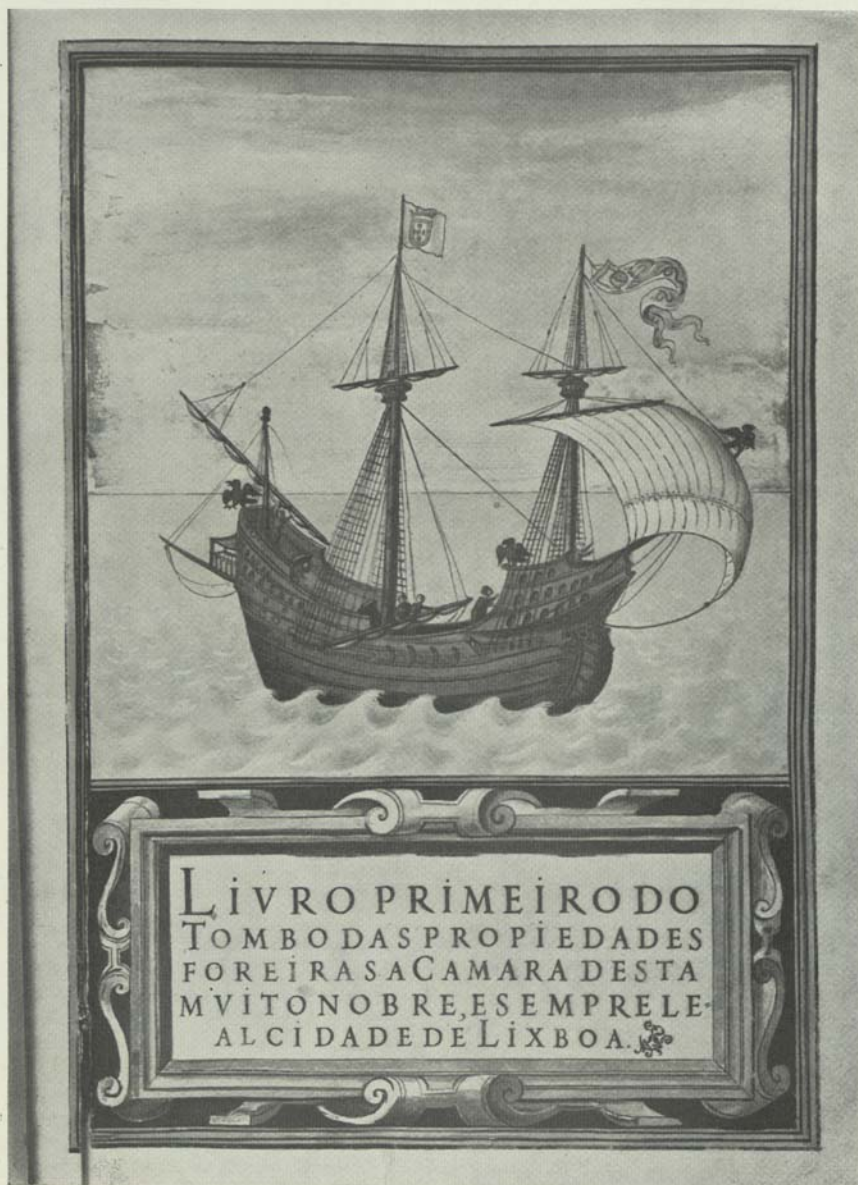 LiVRO PRiMEiRO DO
TOMBO DAS PROPiEDADES
FOREiRAS A CAMARA DESTA
MViTO NOBRE, E SEMPRE LE-
AL CiDADE DE LiXBOA.